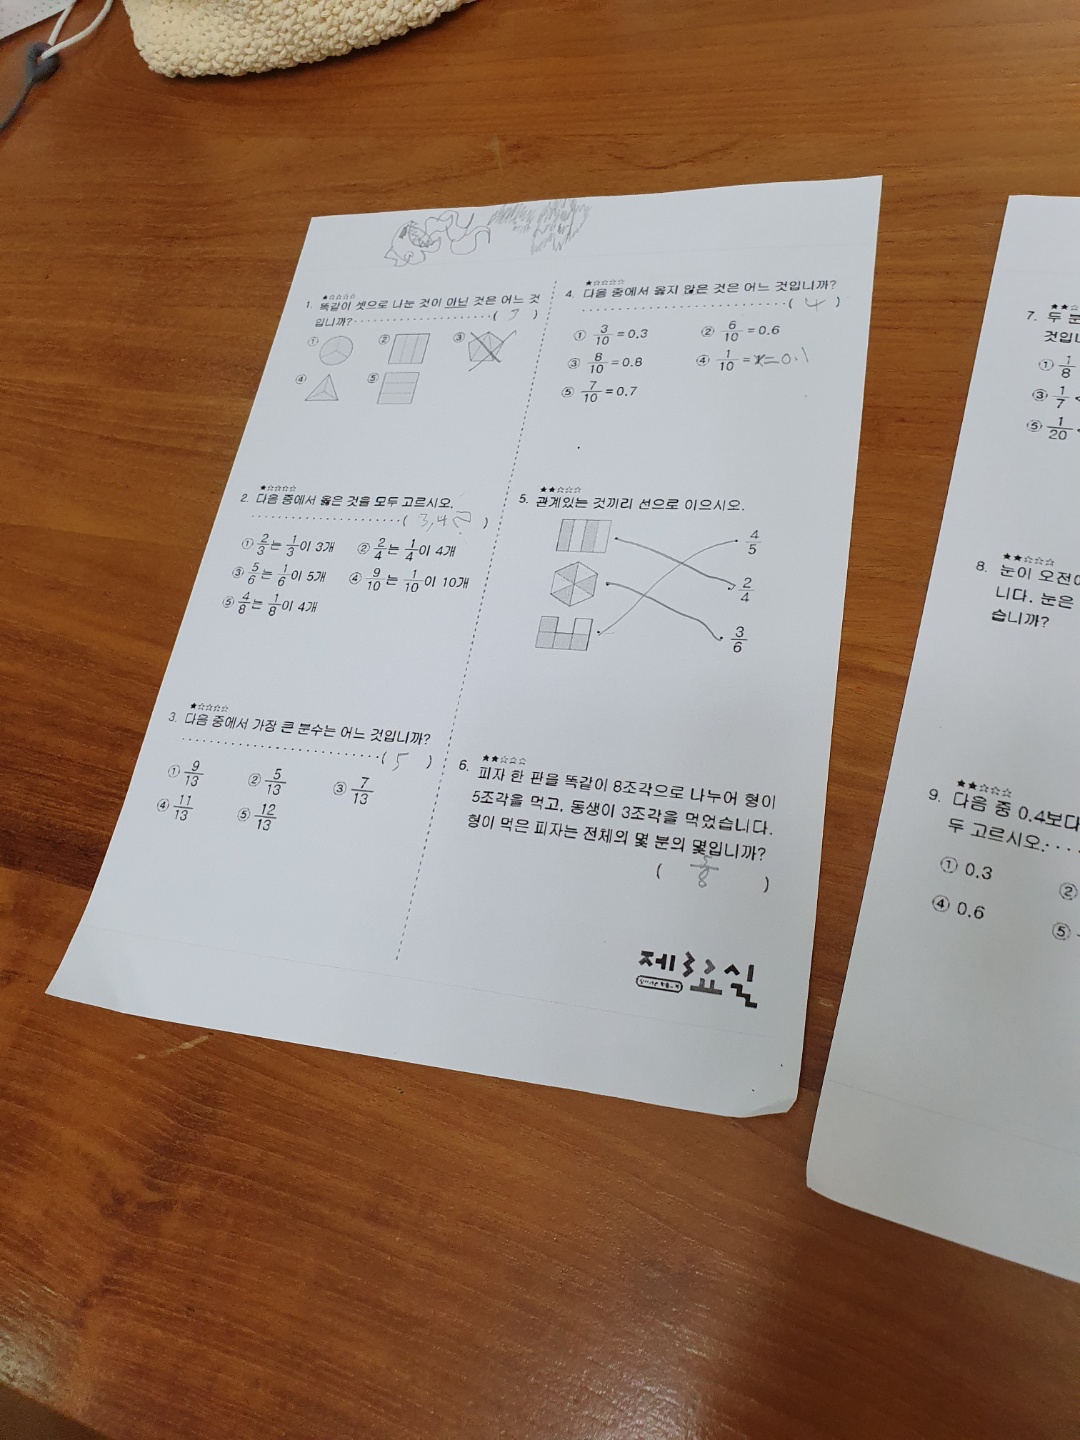 ★☆☆☆☆
1. 똑같이 셋으로 나눈 것이 아닌 것은 어느 것
입니까? ( )
① ② ③
④ ⑤
★☆☆☆☆
2. 다음 중에서 옳은 것을 모두 고르시오.
( 3,4 )
① 2/3는 1/3이 3개 ② 2/4는 1/4이 4개
③ 5/6는 1/6이 5개 ④ 9/10는 1/10이 10개
⑤ 4/8는 1/8이 4개
★☆☆☆☆
3. 다음 중에서 가장 큰 분수는 어느 것입니까?
( 5 )
① 9/13 ② 5/13 ③ 7/13
④ 11/13 ⑤ 12/13
★☆☆☆☆
4. 다음 중에서 옳지 않은 것은 어느 것입니까?
( 4 )
① 3/10 = 0.3 ② 6/10 = 0.6
③ 8/10 = 0.8 ④ 1/10 = = 0.1
⑤ 7/10 = 0.7
★★☆☆☆
5. 관계있는 것끼리 선으로 이으시오.
4/5
2/4
3/6
★★☆☆☆
6. 피자 한 판을 똑같이 8조각으로 나누어 형이
5조각을 먹고, 동생이 3조각을 먹었습니다.
형이 먹은 피자는 전체의 몇 분의 몇입니까?
( 5/8 )
제료실
★★
7. 두
것입니
① 1/8
③ 1/7 <
⑤ 1/20
★★☆☆☆
8. 눈이 오전
니다. 눈은
습니까?
★★☆☆☆
9. 다음 중 0.4보다
두 고르시오.
① 0.3 ②
④ 0.6 ⑤